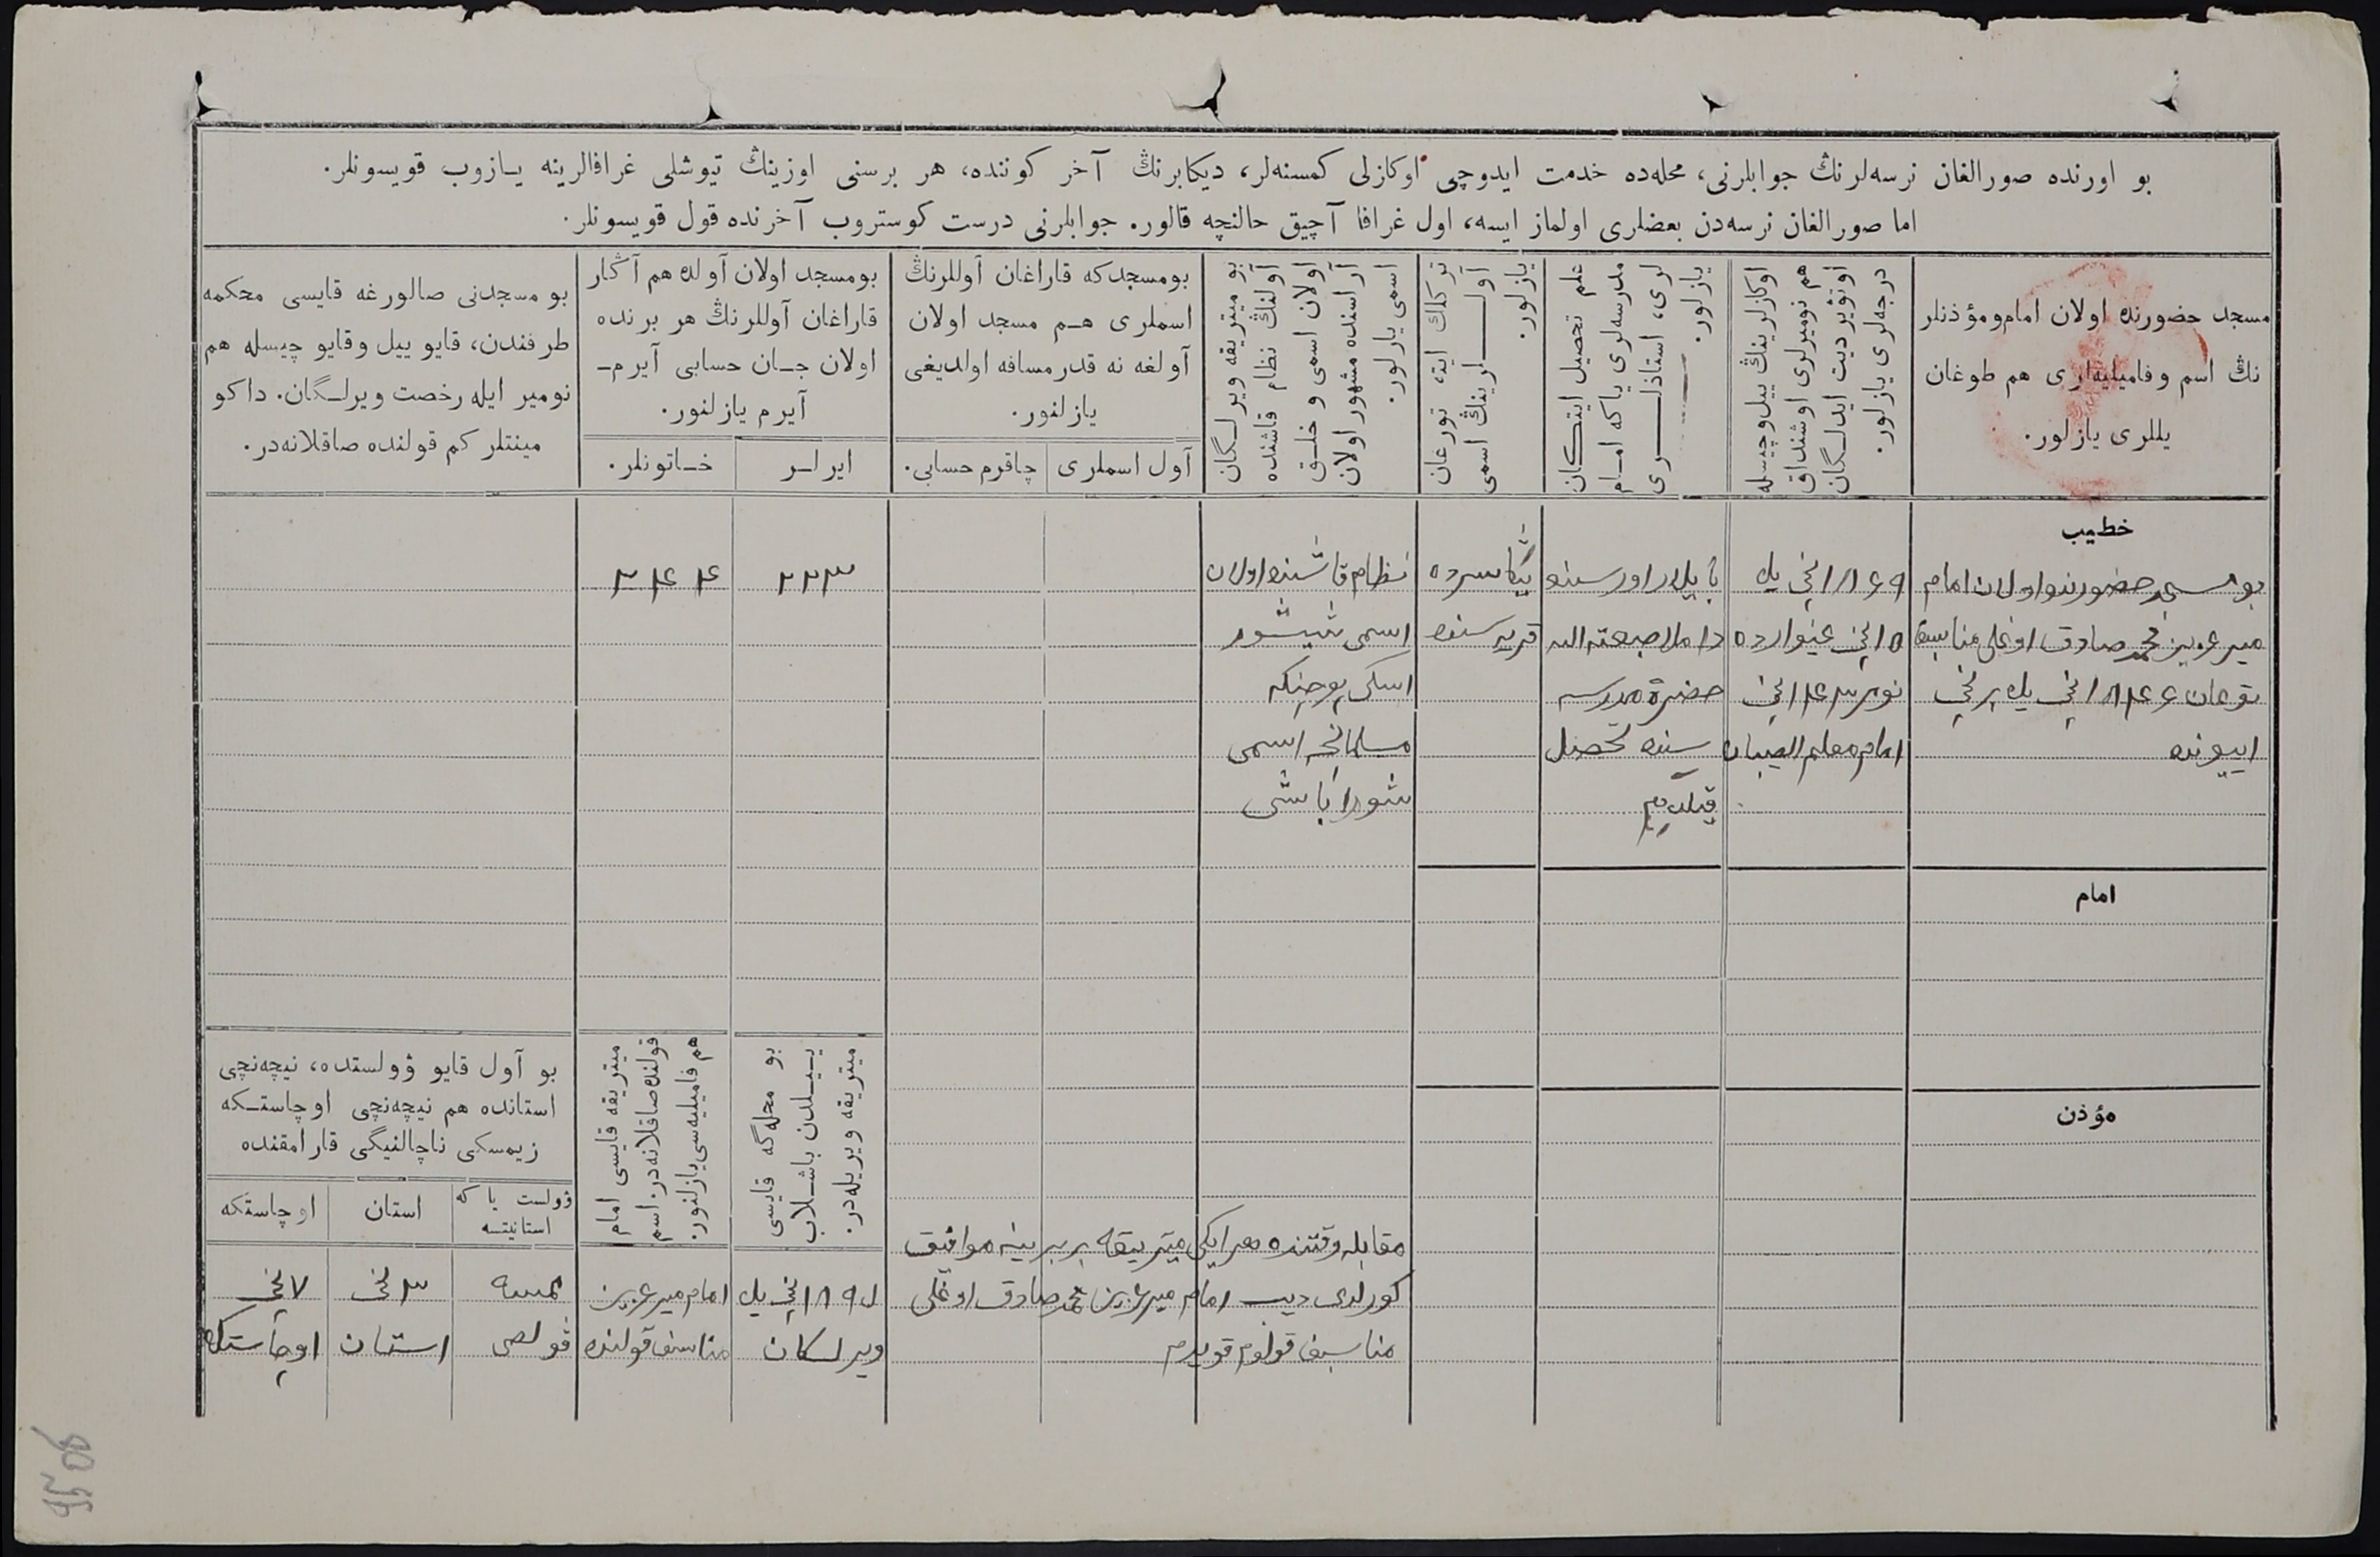 بو اورنده صورالغان نرسه‌لرنڭ جوابلرنی، محله‌ده خدمت ایدوچی اوکازلی کمسنه‌لر، دیکابرنڭ آخر کوننده، هر برسنی اوزینڭ تیوشلی غرافالرینه یازوب قویسونلر.
اما صورالغان نرسه‌دن بعضلری اولماز ایسه، اول غرافا آچیق حالنچه قالور. جوابلرنی درست کوستروب آخرنده قول قویسونلر.
مسجد حضورنده اولان امام ومؤذنلر
نڭ اسم وفامیلیه‌لری هم طوغان
یللری یازلور.
اوکازلرینڭ ییل وچیسله
هم نومیرلری اوشنداق
اوتۋیردیت ایدلـگان
درجه‌لری یازلور.
علم تحصیل ایتـکان
مدرسه‌لری یاکه امـام
لری، استاذلـــری
یازلور.
ترکلك ایته تورغان
آولـــلرینڭ اسمی
یازلور.
بو میتریقه ویرلـگان
آولنڭ نظام قاشنده
اولان اسمی و خلـق
آراسنده مشهور اولان
اسمی یازلور.
بومسجدکه قاراغان آوللرنڭ
اسملری هـم مسجد اولان
آولغه نه قدر مسافه اولدیغی
یازلنور.
آول اسملری
چاقرم حسابی.
بومسجد اولان آولده هم آڭار
قاراغان آوللرنڭ هر برنده
اولان جـان حسابی آیرم-
آیرم یازلنور.
ایرلـر
خـاتونلر.
بو مسجدنی صالورغه قایسی محکمه
طرفندن، قایو ییل وقایو چیسله هم
نومیر ایله رخصت ویرلـگان. داکو
مینتلر کم قولنده صاقلانه‌در.
خطیب
بو مسجد حضورنده اولان امام
میرعزیز محمدصادق اوغلی مناسبف
توغان ۱۸۴۶ نچی یل برنچی
اییونده
۱۸۶۹ نچی یل
۱۸ نچی غینوارده
امام معلم الصبیان
داملا صبعته الله
حضرة مدرسه
سنده تحصیل
قیلدم
قریه سنده
نظام قاشنده اولان
اسمی شیشور
اسکی
مسلمانچه اسمی
شورباشی
۲۲۳
۲۴۴
امام
مؤذن
مقابله وقتنده هر ایکی میتریقه بر برینه موافق
کورلدی دیب امام میرعزیز محمدصادق اوغلی
مناسبف قولوم قویدم
بو محله‌گه قایسی
ییـلدن باشـلاب
میتریقه ویریله‌در.
میتریقه قایسی امام
قولنده صاقلانه‌در. اسم
هم فامیلیه‌سی یازلنور.
بو آول قایو ۋولستده، نیچه‌نچی
استانده هم نیچه‌نچی اوچاستـکه
زیمسکی ناچالنیگی قارامقنده
ۋولست یا که
استانیتسه
استان
اوچاستکه
نچی یل
ویرلکان
امام میرعزیز
مناسبف قولنده
۳ نچی
استان
۷ نچی
اوچاستکه
95 об